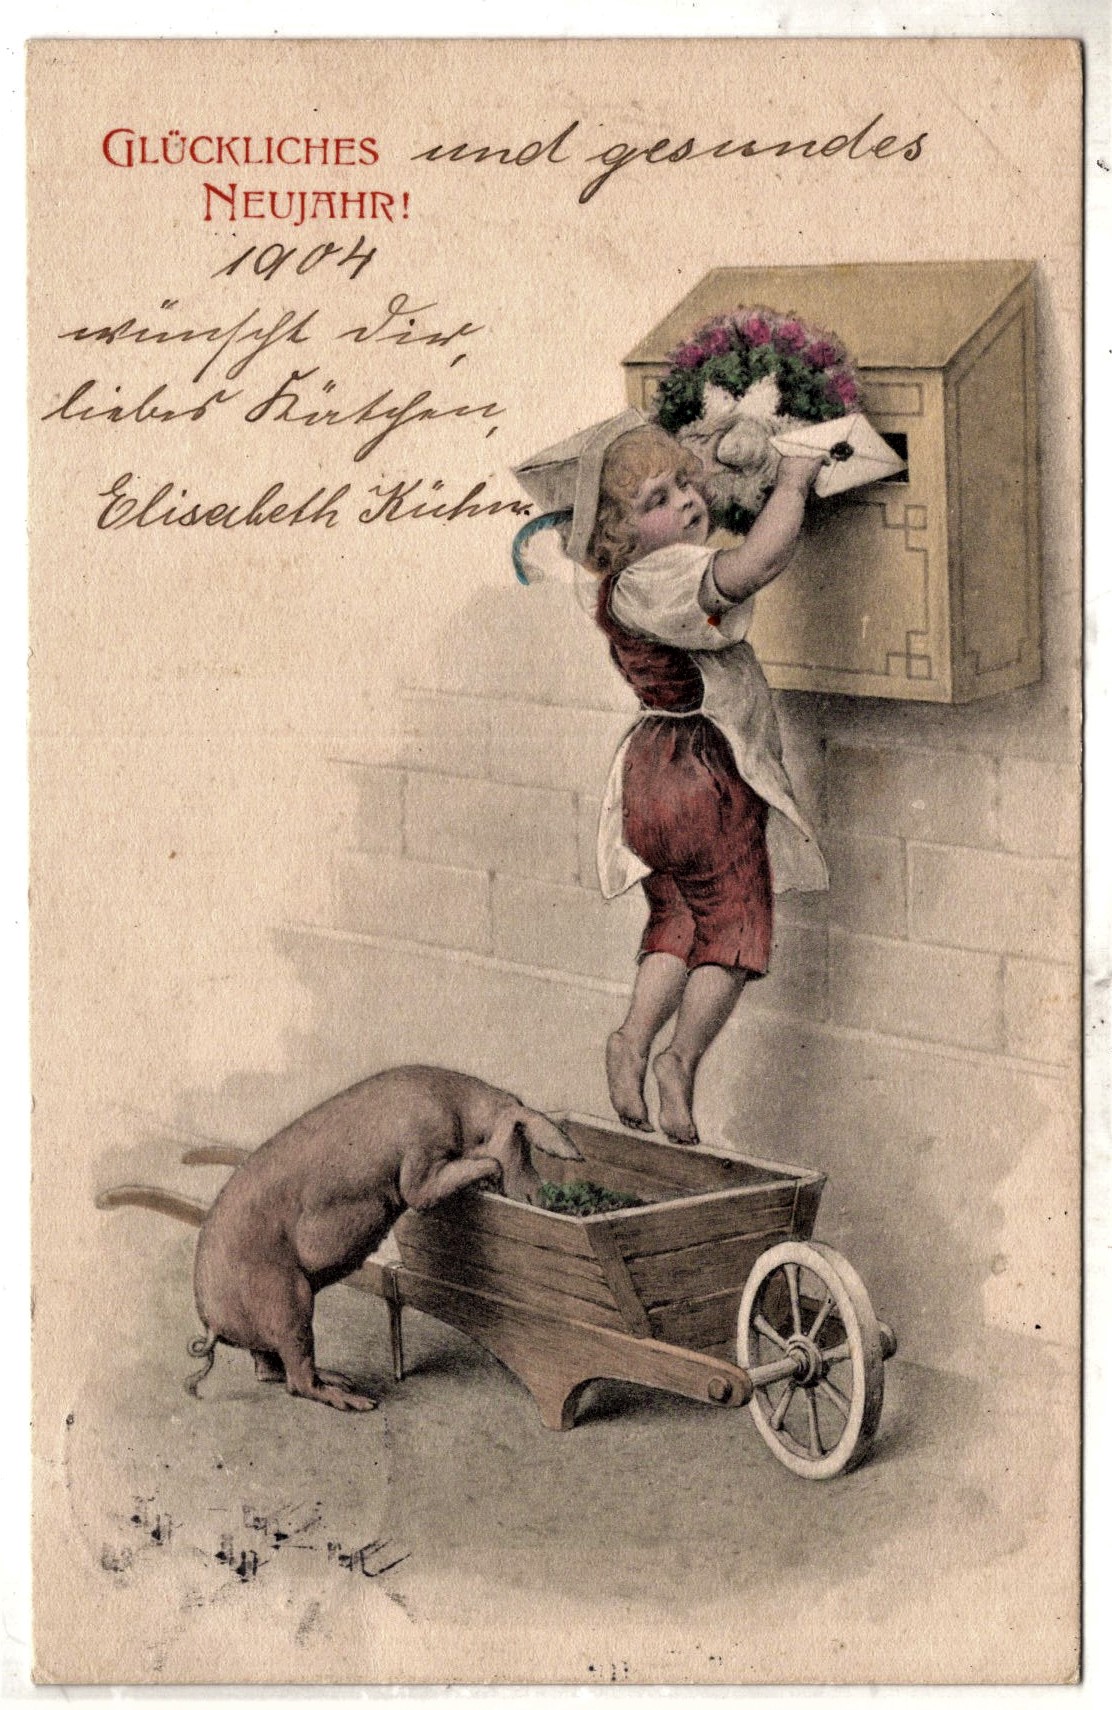 GLÜCKLICHES und gesundes
NEUJAHR!
1904
wünscht Dir,
liebes Kätchen,
Elisabeth Kühn.